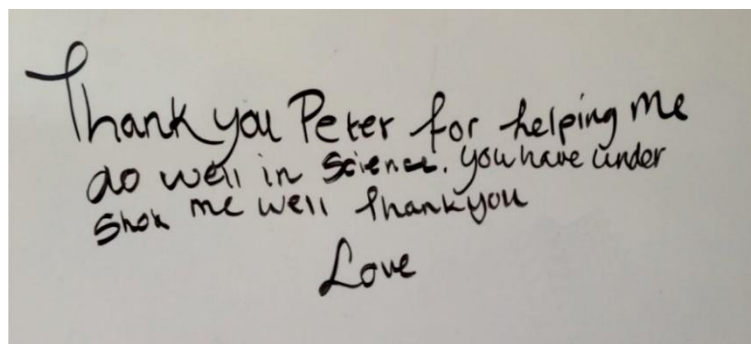 Thank you Peter for helping me
do well in Science. you have under
Shok me well thank you
Love